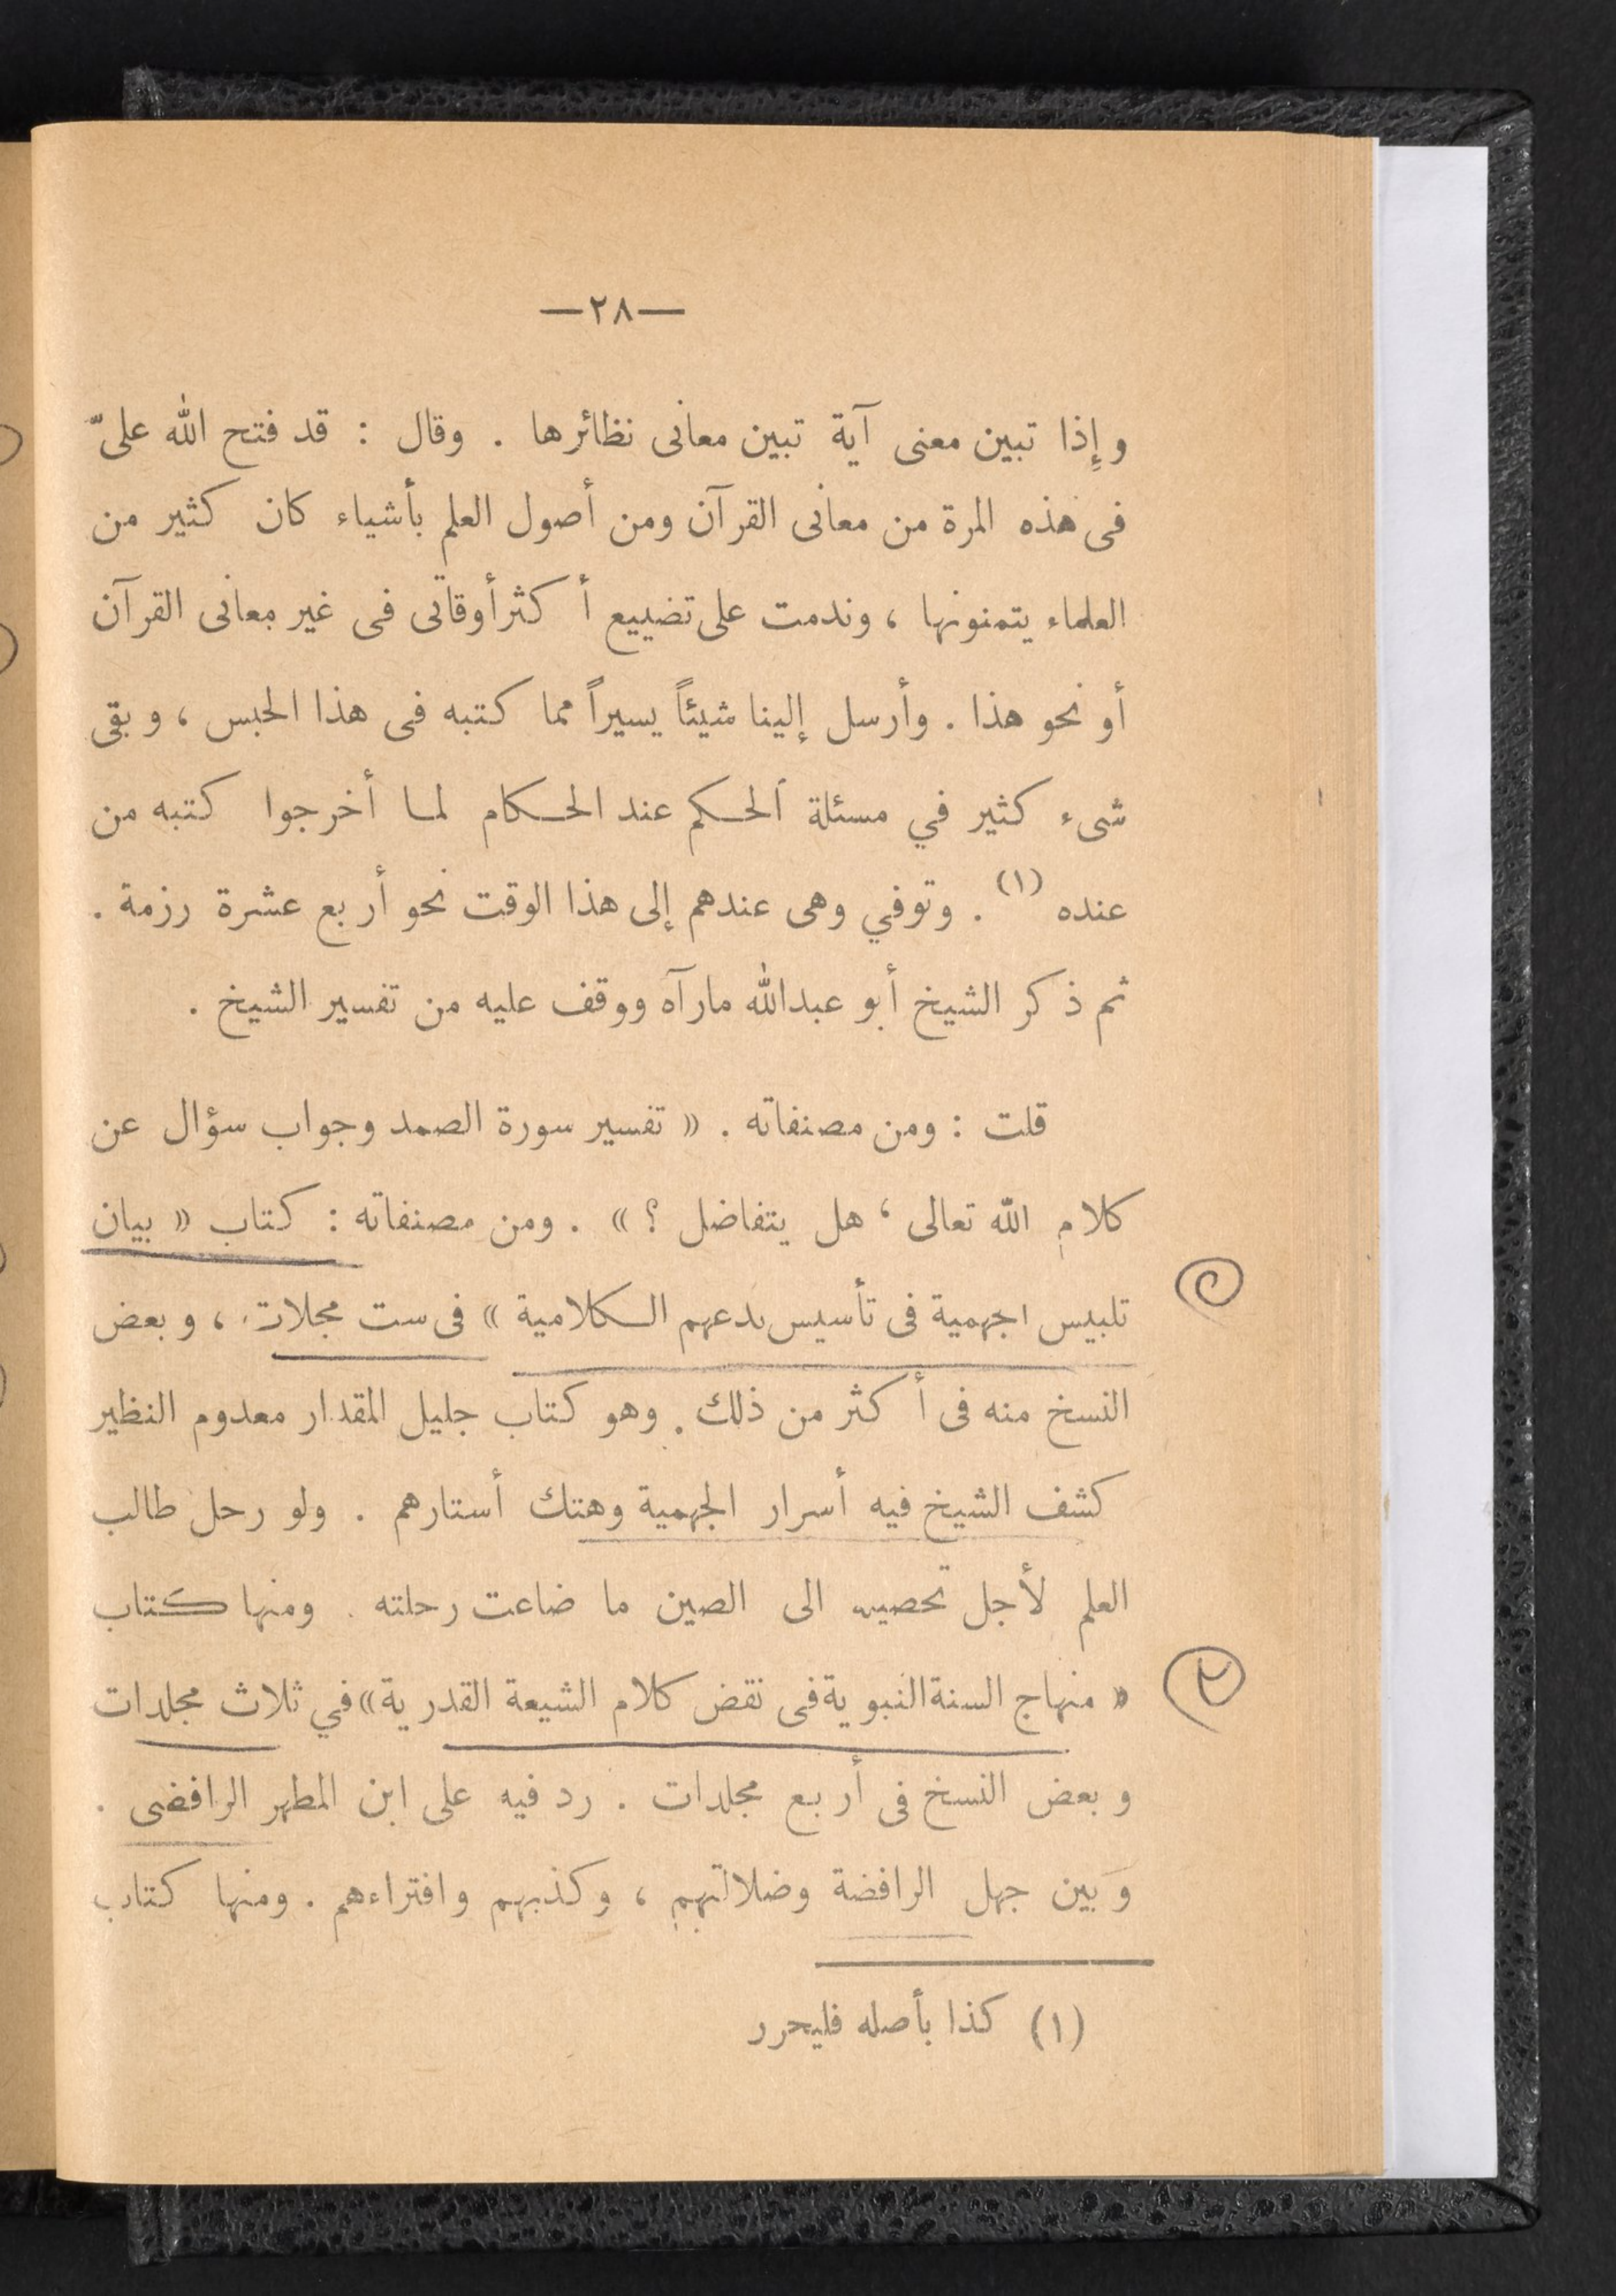 —٢٨—
وإِذا تبين معنى آية تبين معانى نظائرها . وقال : قد فتح الله علىّ
فى هذه المرة من معانى القرآن ومن أصول العلم بأشياء كان كثير من
العلماء يتمنونها ، وندمت على تضييع أكثر أوقاتى فى غير معانى القرآن
أو نحو هذا . وأرسل إلينا شيئاً يسيراً مما كتبه فى هذا الحبس ، وبقى
شىء كثير في مسئلة الحكم عند الحكام لما أخرجوا كتبه من
عنده (١) . وتوفي وهى عندهم إلى هذا الوقت نحو أربع عشرة رزمة .
ثم ذكر الشيخ أبو عبدالله مارآه ووقف عليه من تفسير الشيخ .
قلت : ومن مصنفاته . « تفسير سورة الصمد وجواب سؤال عن
كلام الله تعالى ، هل يتفاضل ؟ » . ومن مصنفاته : كتاب « بيان
تلبيس الجهمية فى تأسيس بدعهم الكلامية » فى ست مجلات ، وبعض
النسخ منه فى أكثر من ذلك . وهو كتاب جليل المقدار معدوم النظير
كشف الشيخ فيه أسرار الجهمية وهتك أستارهم . ولو رحل طالب
العلم لأجل تحصيله الى الصين ما ضاعت رحلته . ومنها كتاب
« منهاج السنة النبوية فى نقض كلام الشيعة القدرية » في ثلاث مجلدات
٢
وبعض النسخ فى أربع مجلدات . رد فيه على ابن المطهر الرافضى .
وَبين جهل الرافضة وضلالتهم ، وكذبهم وافتراءهم . ومنها كتاب
(١) كذا بأصله فليحرر